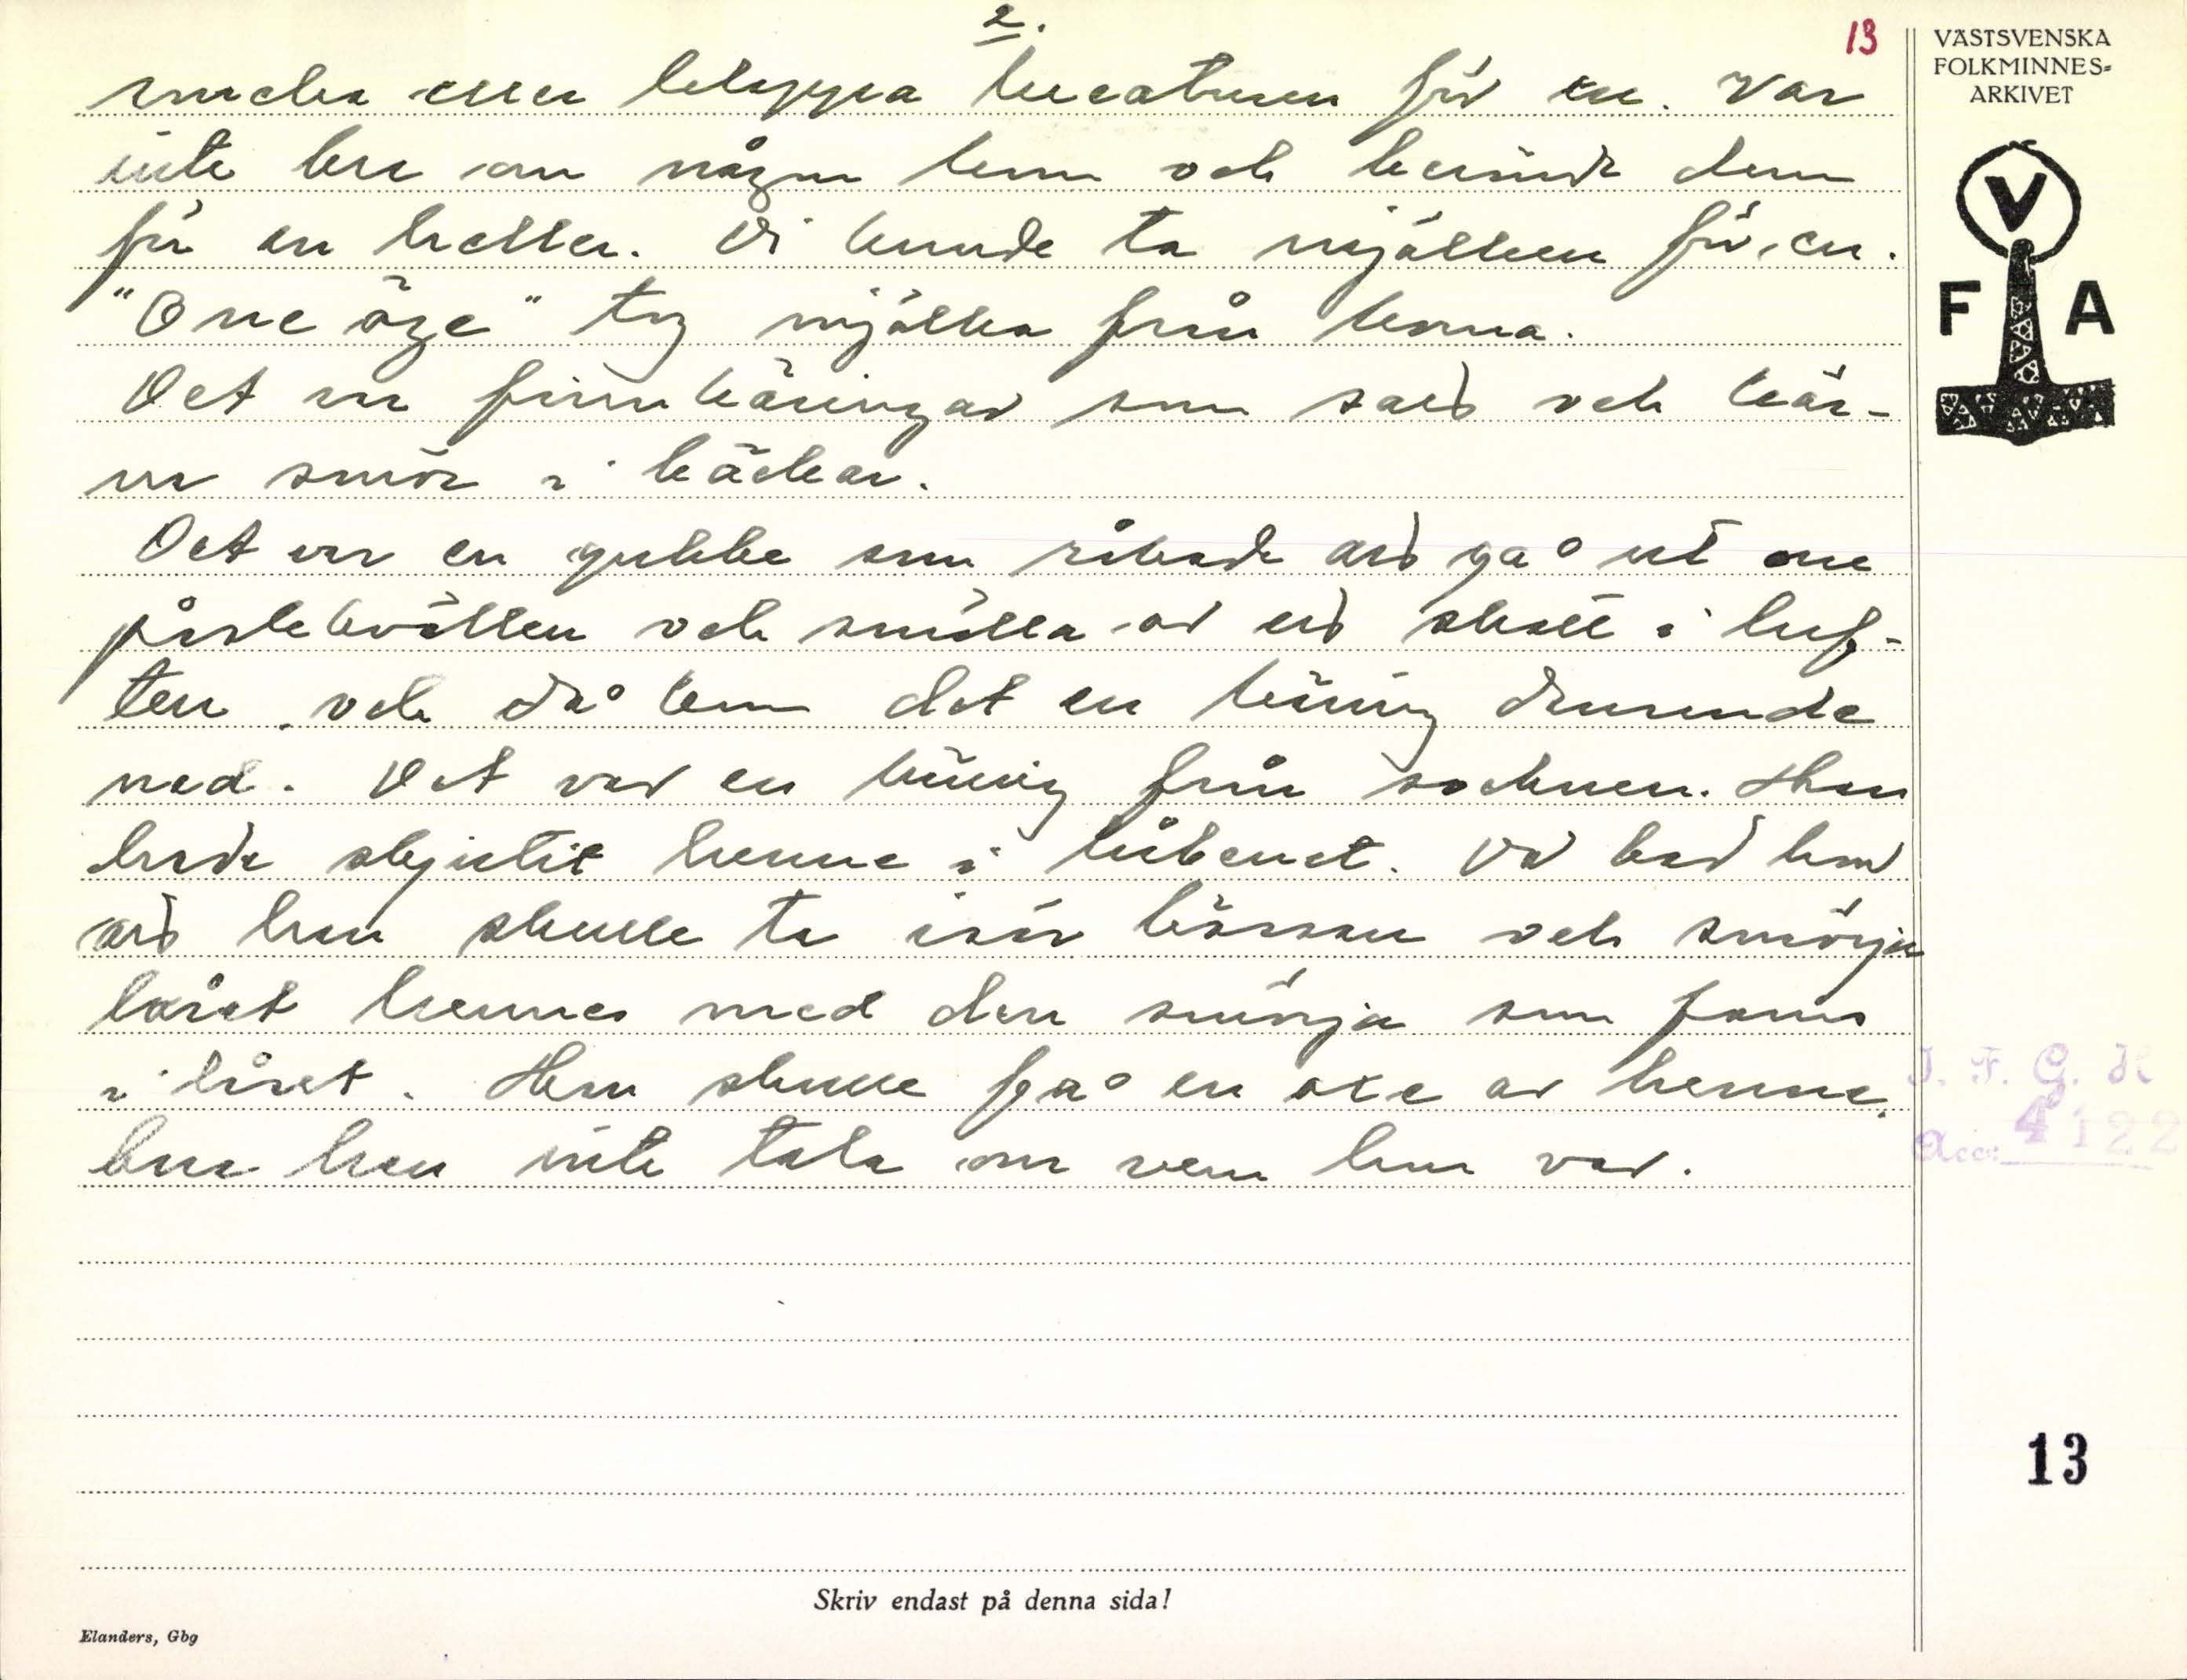 2.
13
smeka eller klappa kreaturen för en. Var
inte bra om någon kom och berömde dem
för en heller. Di kunde ta mjölken för en.
"Onc öge" tog mjölka från korna.
Det var finnkäringar som satt och kär-
na smör i bäckar.
Det var en gubbe som råkade att gå ut one
påskekvällen och smälla av ett skott i luf-
ten och då kom det en käring dunsende
ned. Det var en käring från socknen. Han
hade skjutit henne i lårbenet. Då bad hon
att han skulle ta isär bössan och smörja
låret hennes med den smörja som fanns
i låset. Han skulle få en oxe av henne,
bara han inte tala om vem hon var.
VÄSTSVENSKA
FOLKMINNES-
ARKIVET
V
F A
I. F. G. H
Acc: 4122
13
Skriv endast på denna sida!
Elanders, Gbg